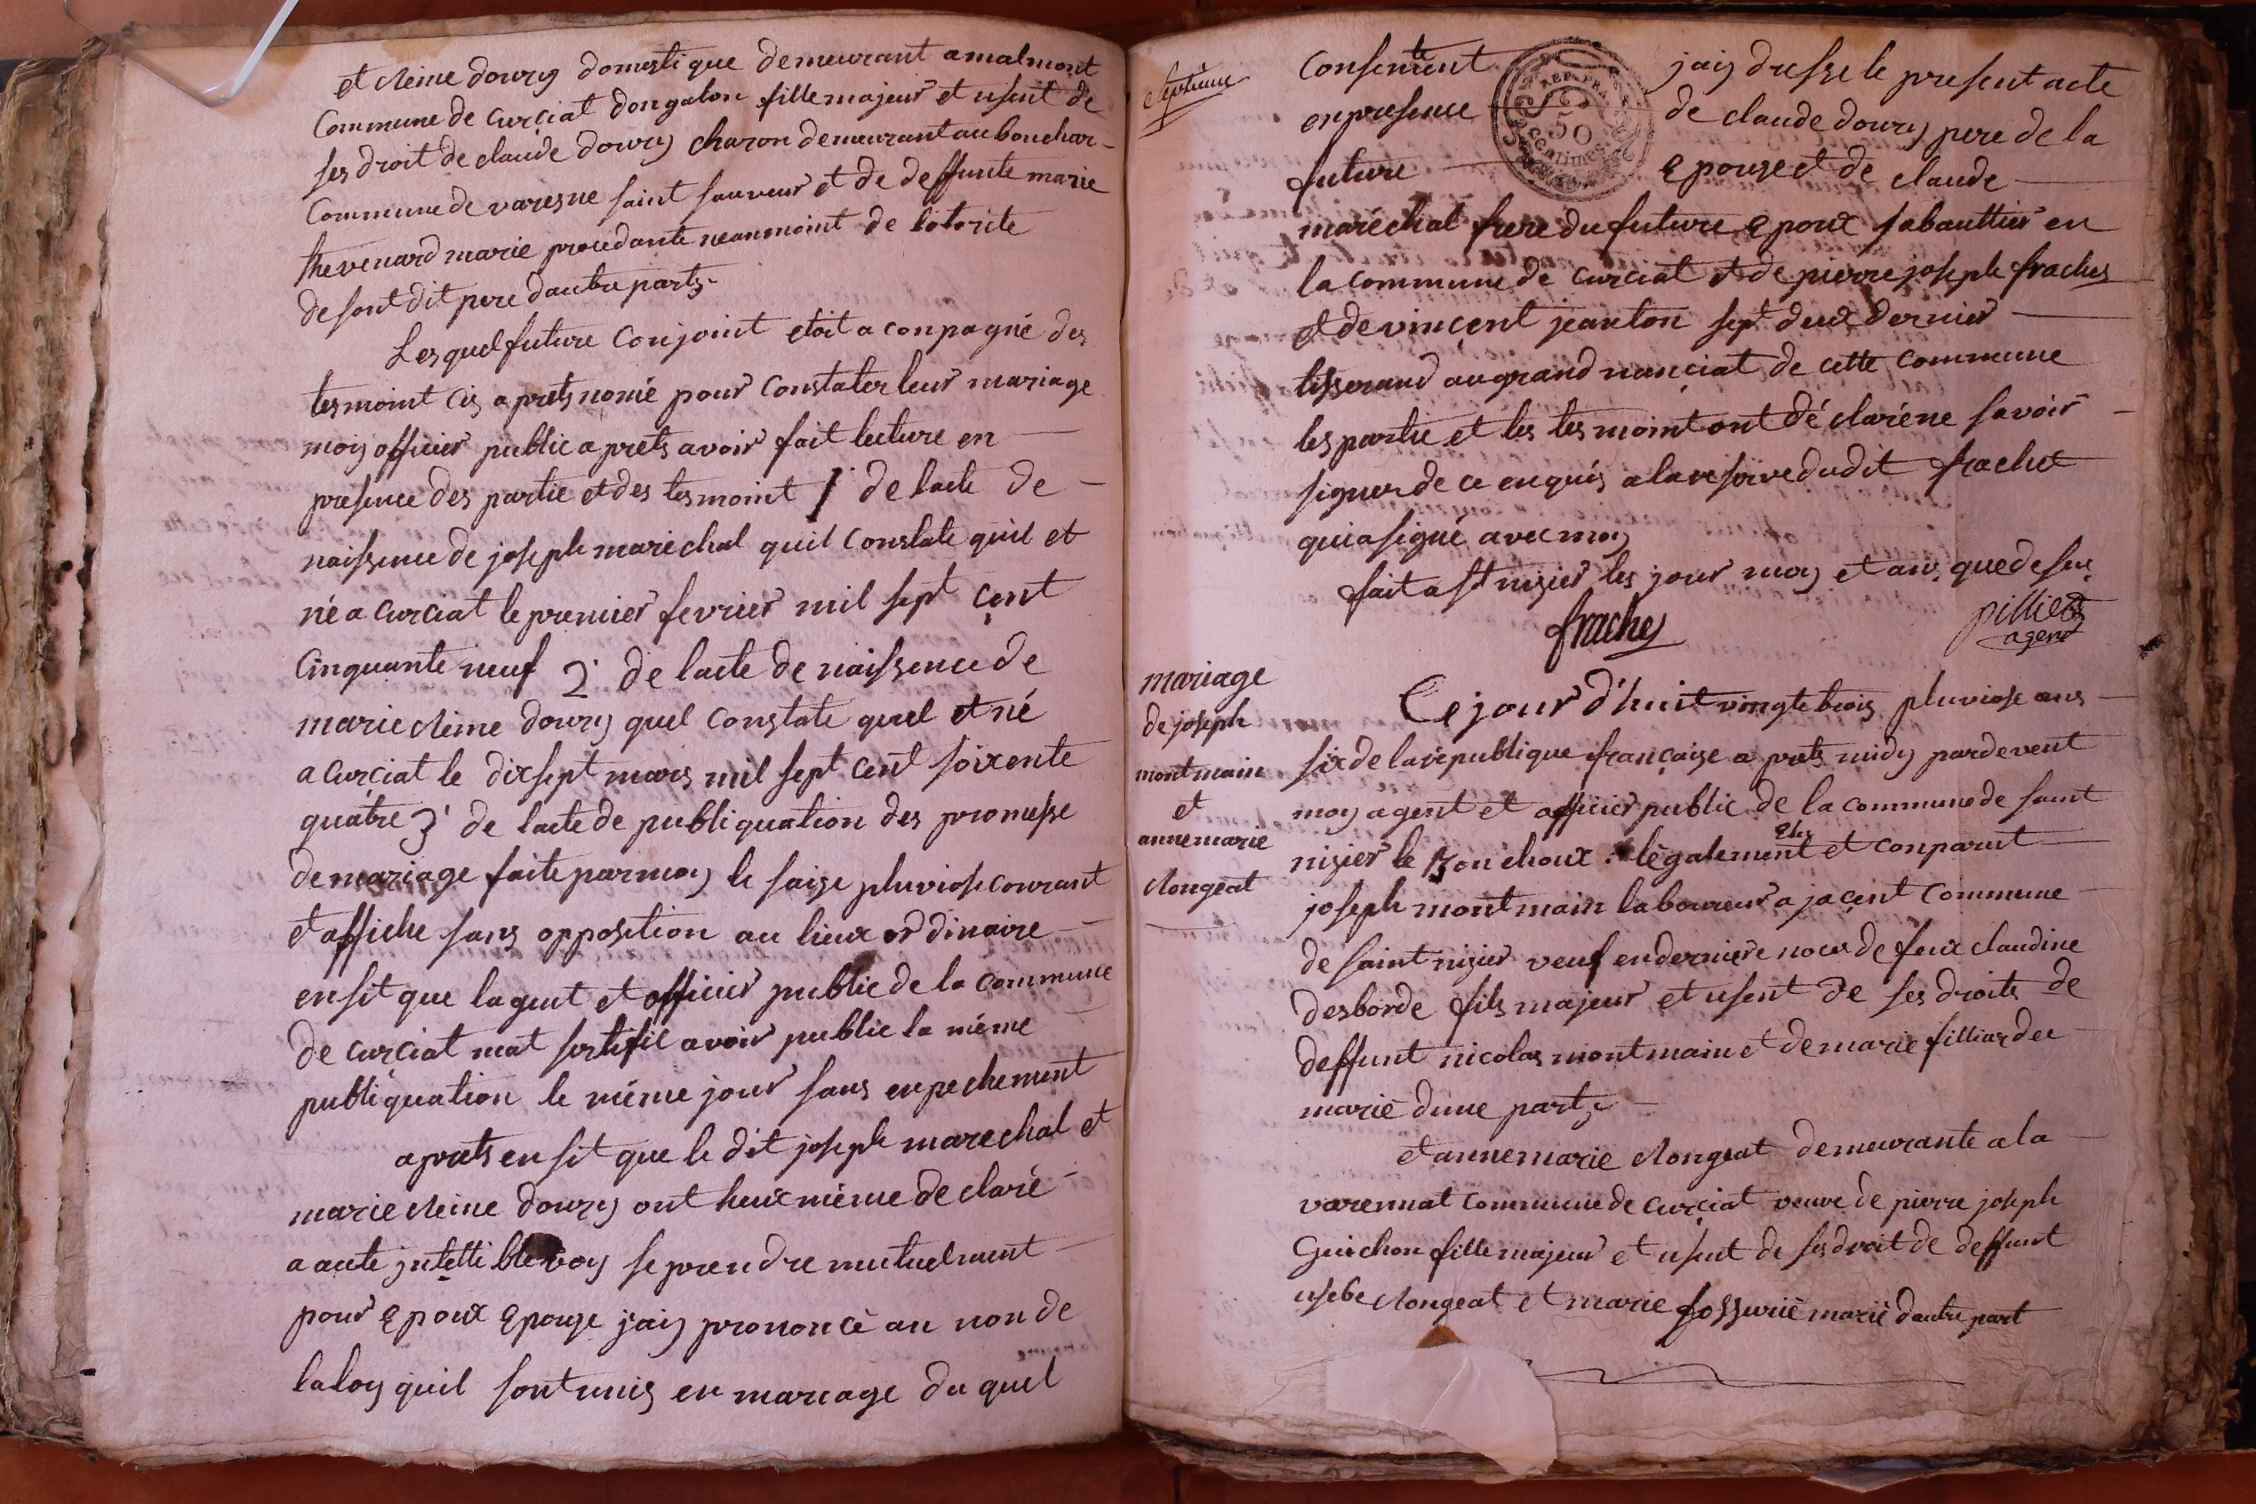 et cleine doury domestique demeurant a malmont
Commune de Curçiat dongalon fille majeur et usent de
ses droit de claude doury charon demeurant au bouchar-
Commune de varesne saint sauveur et de deffunte marie
thevenard marie procedante neanmoint de lotorite
de sont dit pere dautre parts
Lesquel future Conjoint etoit a conpagné des
tesmoint cis aprets nomé pour Constater leur mariage
moy officier public aprets avoir fait lecture en
presence des partie et des tesmoint 1 de lacte de
naissence de joseph marechal quil Constate quil et
né a Curciat le premier fevrier mil sept çent
Cinquante neuf 2 de lacte de naissence de
marie cleine doury quel constate quel et né
a Curçiat le dixsept mars mil sept cent soixente
quatre 3 de lacte de publiquation des promesse
de mariage faite par moy le saize pluviose courant
et affiche sans opposition au lieux ordinaire
ensit que lagent et officier public de la commune
de curçiat mat sertifié avoir public la méme
publiquation le méme jour sans enpechement
aprets ensit que le dit joseph marechal et
marie cleine doury ont heux méme de claré
a aute jntelli ble voy se prendre mutuelment
pour epoux epouze jaiy prononcé au non de
la loy quil sont unis en mariage du quel
septieme
Consentent te jaiy dresse le present acte
en presence de claude doury pere de la
future epouze et de claude
maréchal frere du future epoux sabauttier en
la commune de curciat et de pierre joseph fraches
et de vinçent jeanton sept deux dernier
tisserand au grand nançiat de cette commune
les partie et les tesmoint ont dé claréne savoir
signer de ce enquis a la reserve dudit frachet
qui a signé avec moy
fait a st nizier les jour moy et ans que de sus
fraches
pilliet
agent
mariage
de joseph
montmain
et
anne marie
clongeat
Ce jour d'huit vingtetrois pluviose ans
six de la republique française a prets midy pardevent
moy agent et officier public de la commune de saint
nizier le Bouchoux légalement elus et conparut
joseph montmain laboureur a jaçent commune
de saint nizier veuf en derniere noces de feux claudine
desborde fils majeur et usent de ses droits de
deffunt nicolas montmain et de marie filliardet
marié dune part
et anne marie clongeat demeurante a la
varennat commune de curçiat veuve de pierre joseph
Guichon fille majeur et usent de ses droit de deffunt
usebe clongeat et marie fossurié marié dautre part